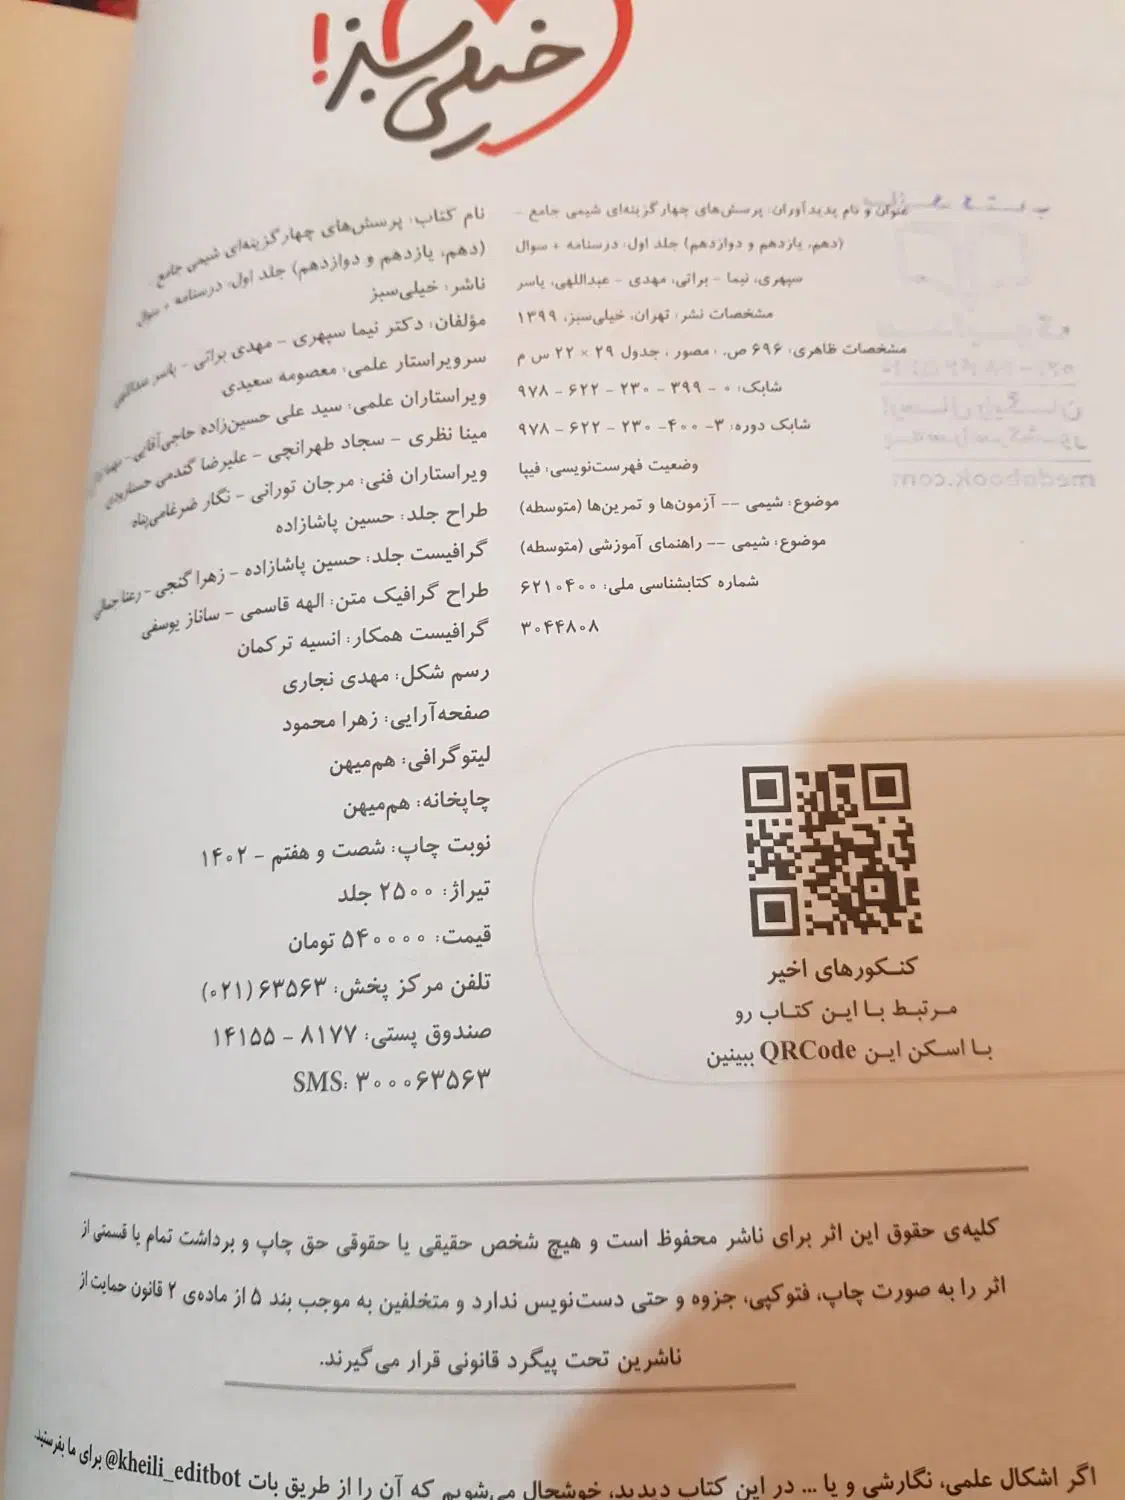 خیلی سبز!
عنوان و نام پدیدآوران: پرسش‌های چهارگزینه‌ای شیمی جامع -
(دهم، یازدهم و دوازدهم) جلد اول: درسنامه + سوال
سپهری، نیما - براتی، مهدی - عبداللهی، یاسر
مشخصات نشر: تهران، خیلی‌سبز، ۱۳۹۹
مشخصات ظاهری: ۶۹۶ ص. : مصور ، جدول ۲۹ × ۲۲ س م
شابک: ۰ - ۳۹۹ - ۲۳۰ - ۶۲۲ - ۹۷۸
شابک دوره: ۳- ۴۰۰- ۲۳۰ - ۶۲۲ - ۹۷۸
وضعیت فهرست‌نویسی: فیپا
موضوع: شیمی -- آزمون‌ها و تمرین‌ها (متوسطه)
موضوع: شیمی -- راهنمای آموزشی (متوسطه)
شماره کتابشناسی ملی: ۶۲۱۰۴۰۰
۳۰۴۴۸۰۸
نام کتاب: پرسش‌های چهارگزینه‌ای شیمی جامع
(دهم، یازدهم و دوازدهم) جلد اول: درسنامه + سوال
ناشر: خیلی‌سبز
مؤلفان: دکتر نیما سپهری - مهدی براتی - یاسر عبداللهی
سرویراستار علمی: معصومه سعیدی
ویراستاران علمی: سید علی حسین‌زاده حاجی‌آقایی -
مینا نظری - سجاد طهرانچی - علیرضا گندمی
ویراستاران فنی: مرجان تورانی - نگار ضرغامی‌پناه
طراح جلد: حسین پاشازاده
گرافیست جلد: حسین پاشازاده - زهرا گنجی - رعنا جمالی
طراح گرافیک متن: الهه قاسمی - ساناز یوسفی
گرافیست همکار: انسیه ترکمان
رسم شکل: مهدی نجاری
صفحه‌آرایی: زهرا محمود
لیتوگرافی: هم‌میهن
چاپخانه: هم‌میهن
نوبت چاپ: شصت و هفتم - ۱۴۰۲
تیراژ: ۲۵۰۰ جلد
قیمت: ۵۴۰۰۰۰ تومان
تلفن مرکز پخش: ۶۳۵۶۳ (۰۲۱)
صندوق پستی: ۸۱۷۷ - ۱۴۱۵۵
SMS: ۳۰۰۰۶۳۵۶۳
کنـکورهای اخیر
مـرتبـط بـا ایـن کتـاب رو
بـا اسـکن ایـن QRCode ببینین
کلیه‌ی حقوق این اثر برای ناشر محفوظ است و هیچ شخص حقیقی یا حقوقی حق چاپ و برداشت تمام یا قسمتی از
اثر را به صورت چاپ، فتوکپی، جزوه و حتی دست‌نویس ندارد و متخلفین به موجب بند ۵ از ماده‌ی ۲ قانون حمایت از
ناشرین تحت پیگرد قانونی قرار می‌گیرند.
اگر اشکال علمی، نگارشی و یا ... در این کتاب دیدید، خوشحال می‌شویم که آن را از طریق بات @kheili_editbot برای ما بفرستید.